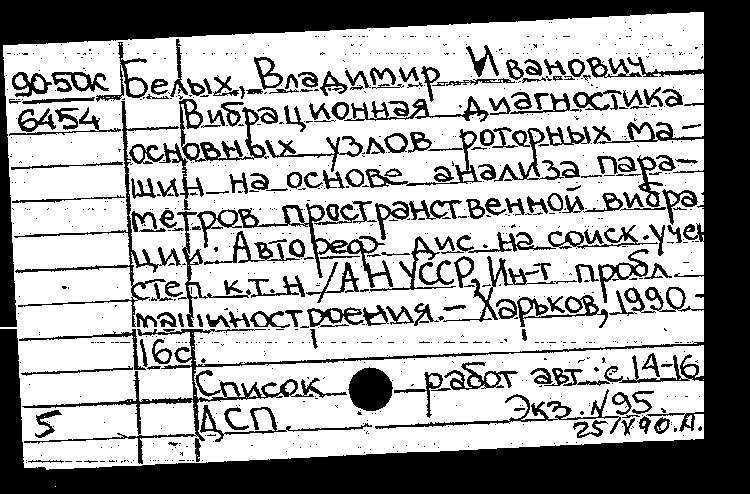 90-50К Белых, Владимир Иванович
6454 Вибрационная диагностика
основных узлов роторных ма-
шин на основе анализа пара-
метров пространственной вибра
ции: Автореф. дис. на соиск. учен
степ. к.т.н. /АН УССР, Ин-т пробл.
машиностроения.- Харьков, 1990.-
16с.
Список работ авт.: с.14-16
5 ДСП. Экз. №95.
25/V90.А.